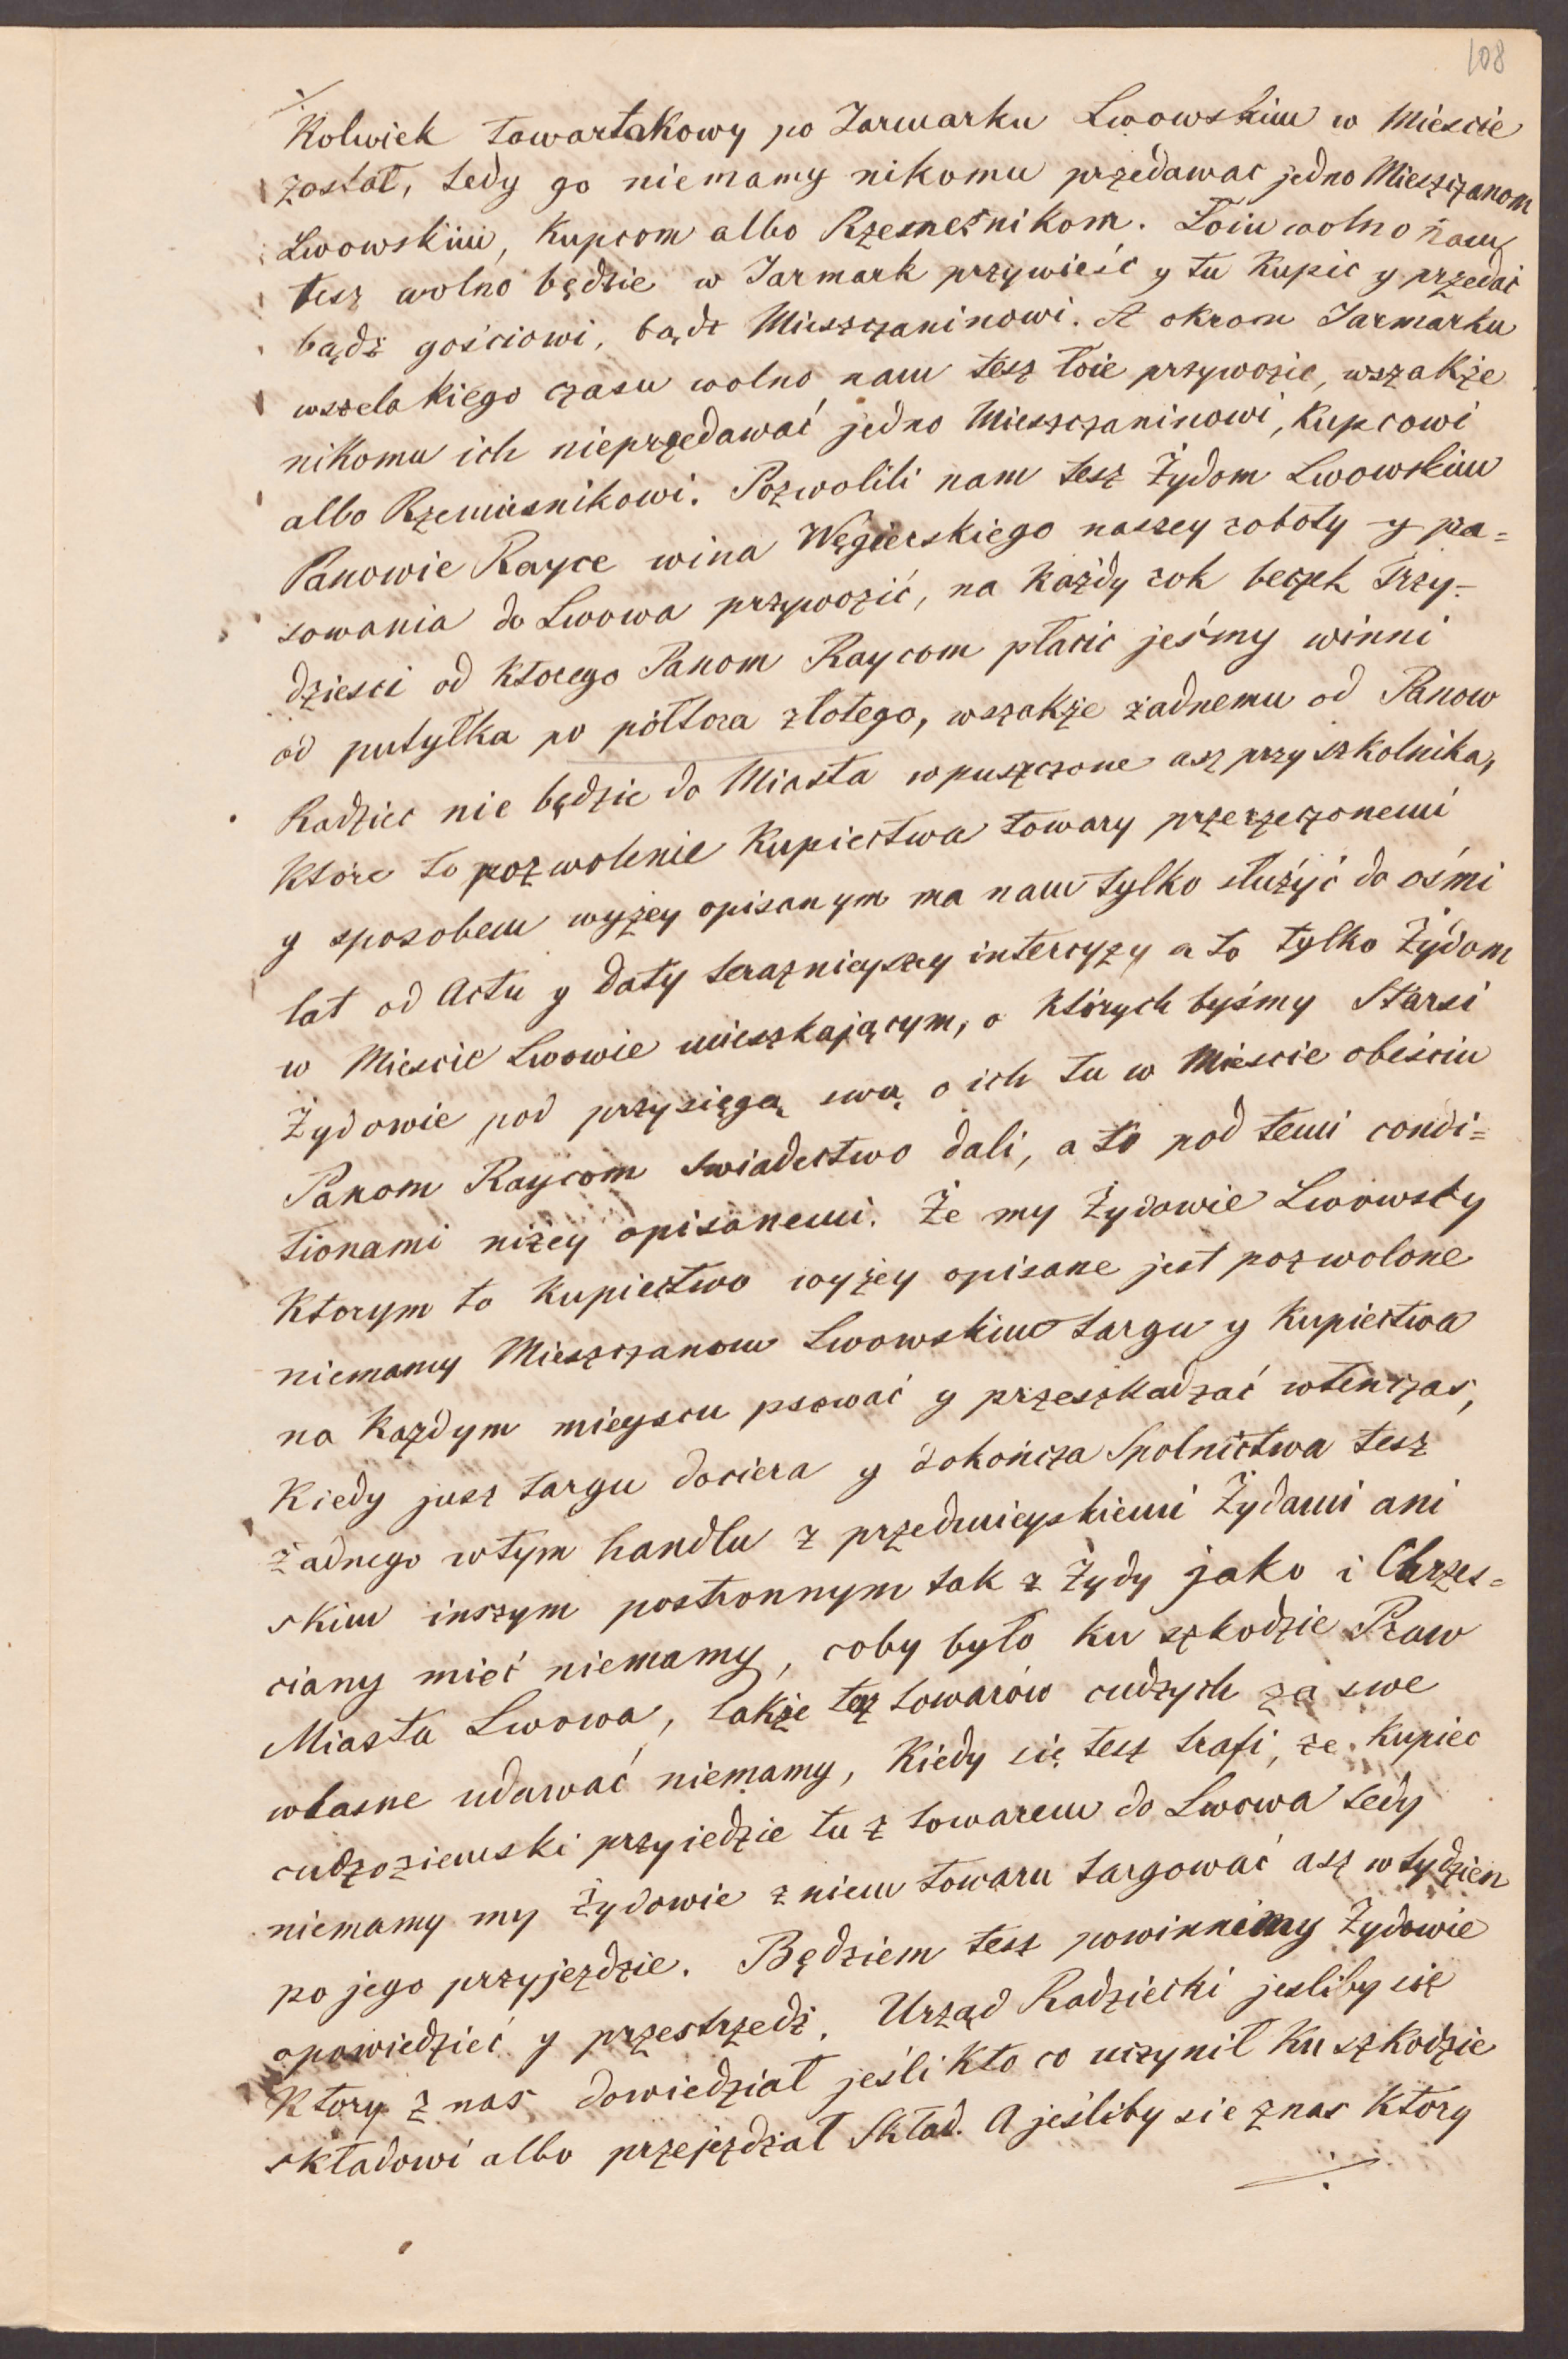 108
Kolwiek towartakowy po Jarmarku Lwowskim w Miescie
został, tedy go niemamy nikomu przedawac jedno Mieszczanom
Lwowskim, Kupcom albo Rzemesnikom. Łoiu wolno nam
tesz wolno będzie w Jarmark przywieść y tu Kupic y przedać
bądź gościowi, bądz Mieszczaninowi. A okrom Jarmarku
wszelakiego czasu wolno nam tesz łoie przywozic, wszakże
nikomu ich nieprzedawać jedno Mieszczaninowi, Kupcowi
albo Rzemiesnikowi. Pozwolili nam tesz Żydom Lwowskim
Panowie Rayce wina Węgierskiego naszey roboty y pra=
sowania do Lwowa przywozić, na każdy rok beczek Trzy-
dziesci od Ktorego Panom Raycom płacic jeśmy winni
od putyłka po półtora złotego, wszakże żadnemu od Panow
Radziec nie będzie do Miasta wpuszczone asz przy szkolnika,
Które to pozwolenie Kupiectwa towary przerzeczonemi
y sposobem wyżey opisanym ma nam tylko służyć do ośmi
lat od Actu y daty terazniejszey intercyzy a to tylko Żydom
w Miescie Lwowie mieszkającym, o których byśmy Starsi
Żydowie pod przysięgą swą o ich tu w Miescie obeiściu
Panom Raycom swiadectwo dali, a to pod temi condi=
tionami niżey opisanemi. Że my Żydowie Lwowsky
Ktorym to Kupiectwo wyżey opisane jest pozwolone
niemamy Mieszczanom Lwowskim targu y Kupiectwa
na Każdym mieyscu psować y przeszkadzać wtenczas,
Kiedy jusz targu dociera y dokończa Spolnictwa tesz
żadnego wtym handlu z przedmieyskiemi Żydami ani
skim inszym postronnym tak z Żydy jako i Chrzes=
ciany mieć niemamy, coby było ku szkodzie Praw
Miasta Lwowa, także tesz towarów cudzych za swe
własne udawać niemamy, Kiedy się tesz trafi, ze Kupiec
cudzoziemski przyiedzie tu z towarem do Lwowa tedy
niemamy my Żydowie z niem towaru targować asz w tydzien
po jego przyjezdzie. Będziem tesz powinni my Żydowie
opowiedzieć y przestrzedz. Urząd Radziecki jesliby się
Ktory z nas dowiedział jeśli Kto co uczynił Ku szkodzie
składowi albo przejezdzał Skład. A jeśliby sie z nas Ktory